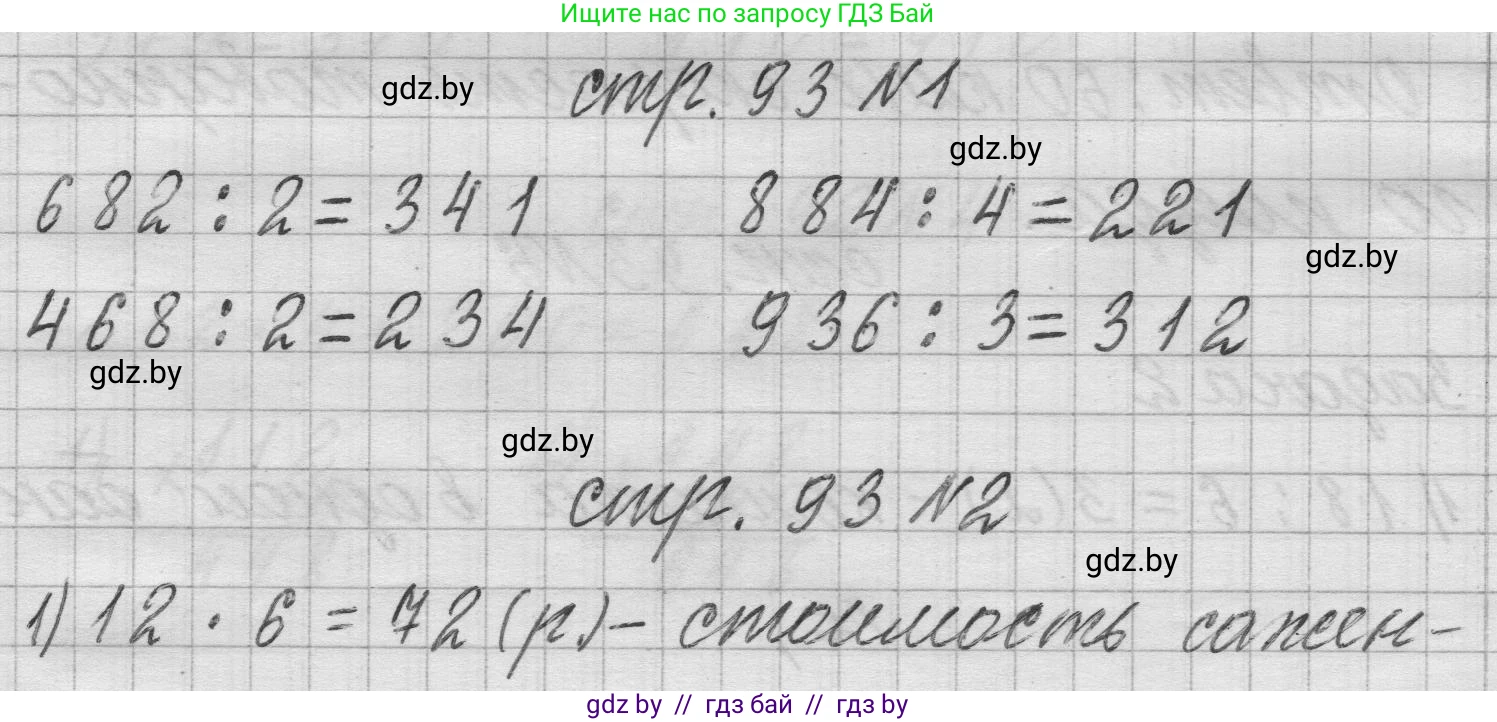 Ищите нас по запросу ГДЗ Бай
gdz.by
стр. 93 №1
gdz.by
682 : 2 = 341 884 : 4 = 221
gdz.by
468 : 2 = 234 936 : 3 = 312
gdz.by
gdz.by
стр. 93 №2
gdz.by
1) 12 · 6 = 72 (р) – стоимость сажен-
gdz by // гдз бай // гдз by